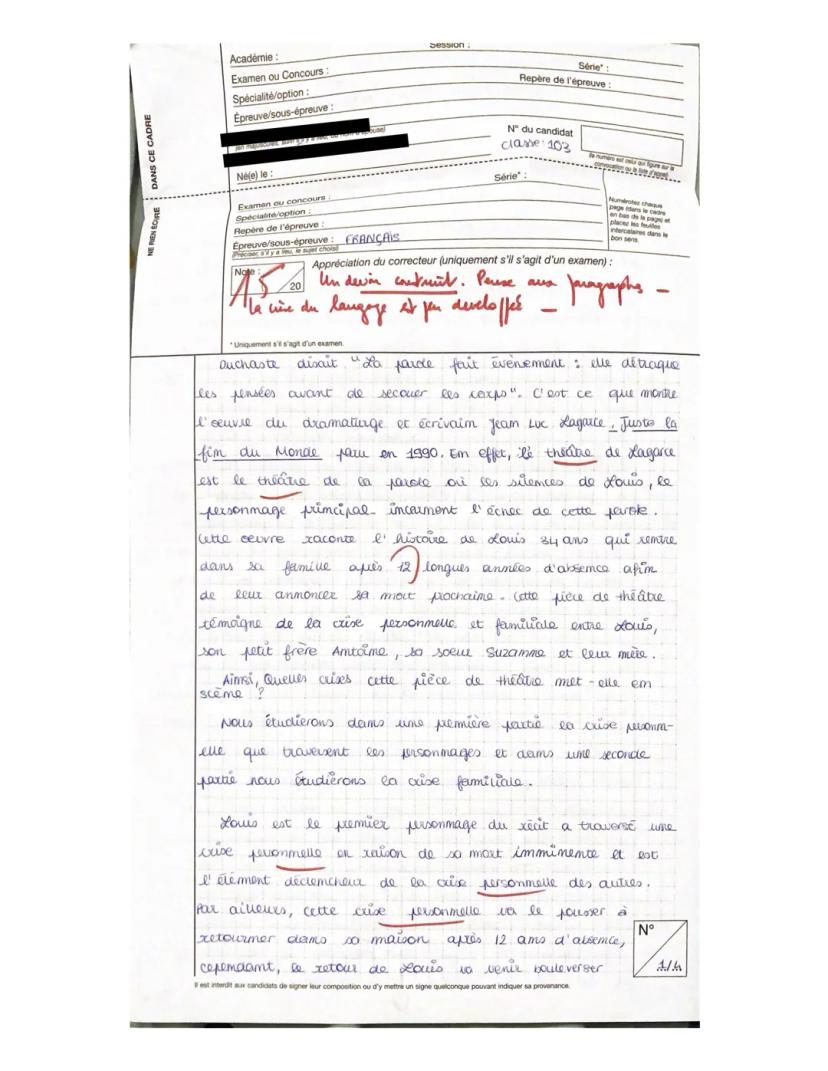 Session :
Académie :
Série* :
Examen ou Concours :
Repère de l'épreuve :
Spécialité/option :
Épreuve/sous-épreuve :
N° du candidat
classe : 103
Né(e) le :
(le numéro est celui qui figure sur la convocation ou la liste d'appel)
DANS CE CADRE
NE RIEN ÉCRIRE
Série* :
Examen ou concours :
Spécialité/option :
Repère de l'épreuve :
Épreuve/sous-épreuve : FRANÇAIS
(Préciser, s'il y a lieu, le sujet choisi)
Numérotez chaque
page (dans le cadre
en bas de la page) et
placez les feuilles
intercalaires dans le
bon sens.
Note :
15 / 20
Appréciation du correcteur (uniquement s'il s'agit d'un examen) :
Un devoir construit. Pense aux paragraphes —
la crise du langage est peu developpée —
* Uniquement s'il s'agit d'un examen.
Duchaste disait "La parole fait évènement : elle détraque
les pensées avant de secouer les corps". C'est ce que montre
l'œuvre du dramaturge et écrivain Jean Luc Lagarce, Juste la
fin du Monde paru en 1990. Em effet, le théâtre de Lagarce
est le théâtre de la parole où les silences de Louis, le
personnage principal incarnent l'échec de cette parole.
Cette œuvre raconte l'histoire de Louis 34 ans qui rentre
dans sa famille après 12 longues années d'absence afin
de leur annoncer sa mort prochaine. Cette pièce de théâtre
témoigne de la crise personnelle et familiale entre Louis,
son petit frère Antoine, sa soeur Suzanne et leur mère.
Ainsi, Quelles crises cette pièce de théâtre met-elle en
scème ?
Nous étudierons dans une première partie la crise personn-
elle que traversent les personnages et dans une seconde
partie nous étudierons la crise familiale.
Louis est le premier personnage du récit a traversé une
crise personnelle en raison de sa mort imminente et est
l'élément déclencheur de la crise personnelle des autres.
Par ailleurs, cette crise personnelle va le pousser à
retourner dans sa maison après 12 ans d'absence,
cependant, le retour de Louis va venir bouleverser
N°
1/4
Il est interdit aux candidats de signer leur composition ou d'y mettre un signe quelconque pouvant indiquer sa provenance.